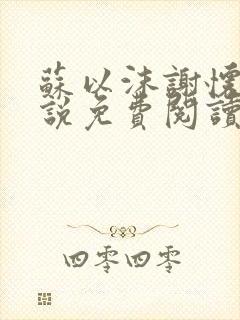 蘇以沫謝懷
說免費閱讀
四零四零